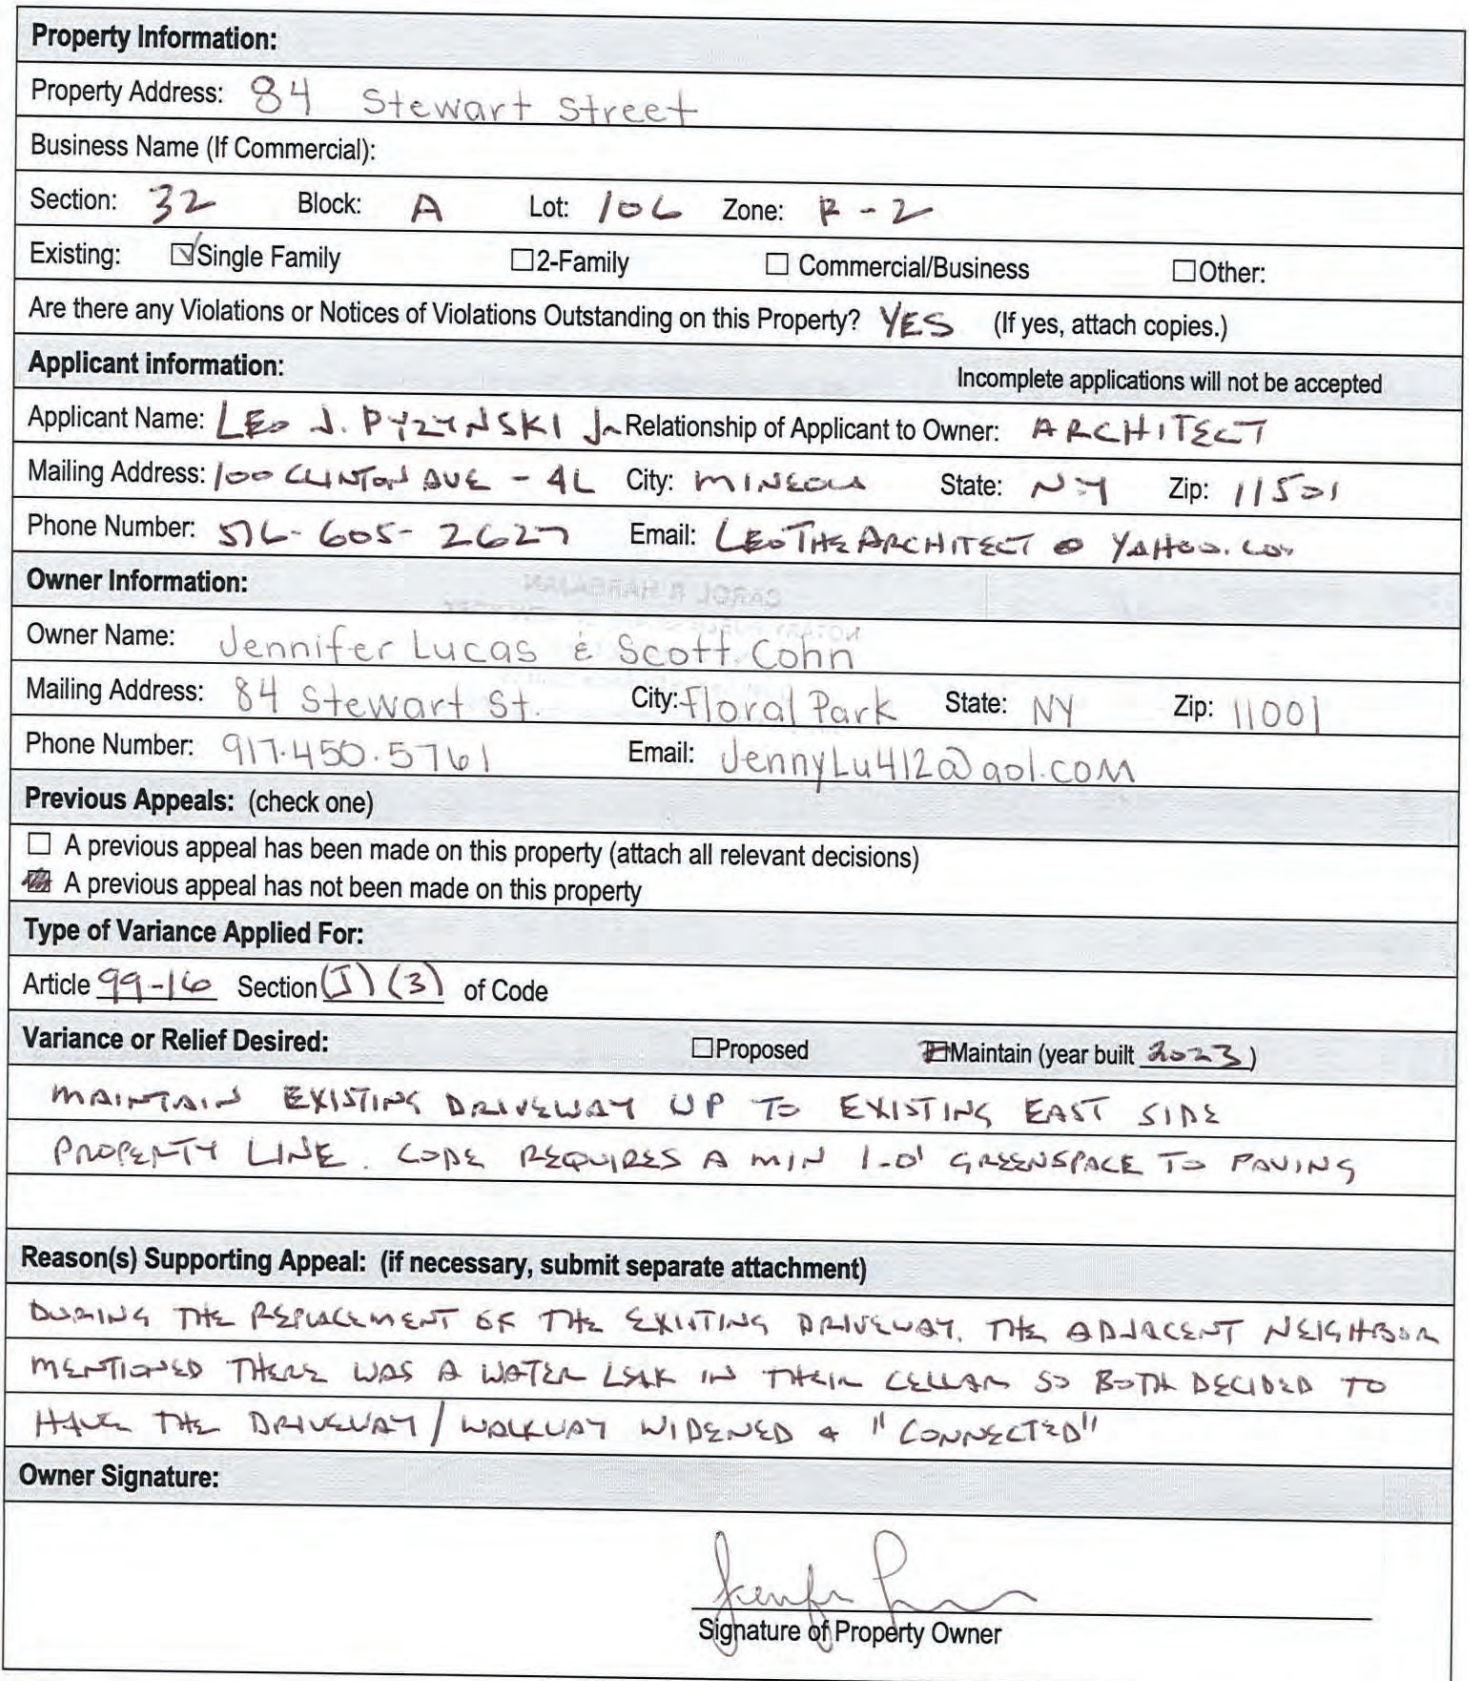 Property Information:
Property Address: 84 Stewart Street
Business Name (If Commercial):
Section: 32 Block: A Lot: 106 Zone: R-2
Existing: ☑Single Family ☐2-Family ☐ Commercial/Business ☐Other:
Are there any Violations or Notices of Violations Outstanding on this Property? YES (If yes, attach copies.)
Applicant information: Incomplete applications will not be accepted
Applicant Name: LEO J. PYZYNSKI Jr Relationship of Applicant to Owner: ARCHITECT
Mailing Address: 100 CLINTON AVE - 4L City: MINEOLA State: NY Zip: 11501
Phone Number: 516-605-2627 Email: LEOTHEARCHITECT@YAHOO.COM
Owner Information:
CAROL R HARBAJAN
NOTARY PUBLIC
Owner Name: Jennifer Lucas & Scott Cohn
Mailing Address: 84 Stewart St. City: Floral Park State: NY Zip: 11001
Phone Number: 917.450.5761 Email: JennyLu412@aol.com
Previous Appeals: (check one)
☐ A previous appeal has been made on this property (attach all relevant decisions)
☒ A previous appeal has not been made on this property
Type of Variance Applied For:
Article 99-16 Section (J) (3) of Code
Variance or Relief Desired: ☐Proposed ☒Maintain (year built 2023)
MAINTAIN EXISTING DRIVEWAY UP TO EXISTING EAST SIDE
PROPERTY LINE. CODE REQUIRES A MIN 1-0' GREENSPACE TO PAVING
Reason(s) Supporting Appeal: (if necessary, submit separate attachment)
DURING THE REPLACEMENT OF THE EXISTING DRIVEWAY. THE ADJACENT NEIGHBOR
MENTIONED THERE WAS A WATER LEAK IN THEIR CELLAR SO BOTH DECIDED TO
HAVE THE DRIVEWAY/WALKWAY WIDENED & "CONNECTED"
Owner Signature:
Signature of Property Owner